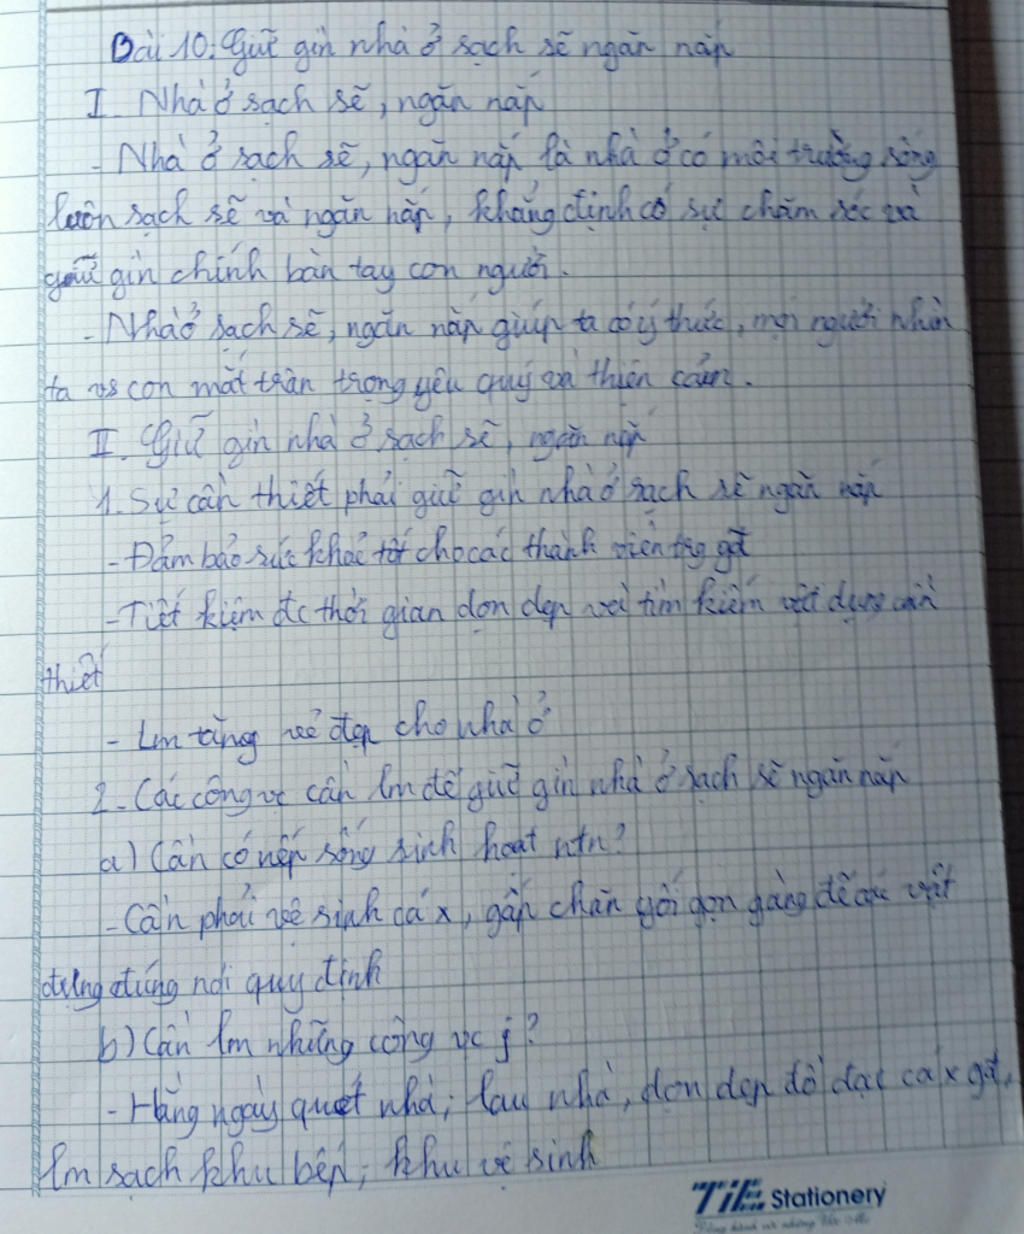 Bài 10: Giữ gìn nhà ở sạch sẽ ngăn nắp
I Nhà ở sạch sẽ, ngăn nắp
- Nhà ở sạch sẽ, ngăn nắp là nhà ở có môi trường sống
luôn sạch sẽ và ngăn nắp, khẳng định có sự chăm sóc và
giữ gìn chính bàn tay con người.
- Nhà ở sạch sẽ, ngăn nắp giúp ta có ý thức, mọi người nhìn
ta vs con mắt trân trọng yêu quý và thiện cảm.
II. Giữ gìn nhà ở sạch sẽ, ngăn nắp
1. Sự cần thiết phải giữ gìn nhà ở sạch sẽ ngăn nắp
- Đảm bảo sức khoẻ tốt cho các thành viên trg gđ
- Tiết kiệm đc thời gian dọn dẹp và tìm kiếm vật dụng cần
thiết
- Lm tăng vẻ đẹp cho nhà ở
2. Các công vc cần lm để giữ gìn nhà ở sạch sẽ ngăn nắp
a) Cần có nếp sống sinh hoạt ntn?
- Cần phải vệ sinh cá x, gấp chăn gối gọn gàng để các vật
dụng đúng nơi quy định
b) Cần lm những công vc j?
- Hằng ngày quét nhà, lau nhà, dọn dẹp đồ đạc cá x gđ,
lm sạch khu bếp, khu vệ sinh
TiE Stationery